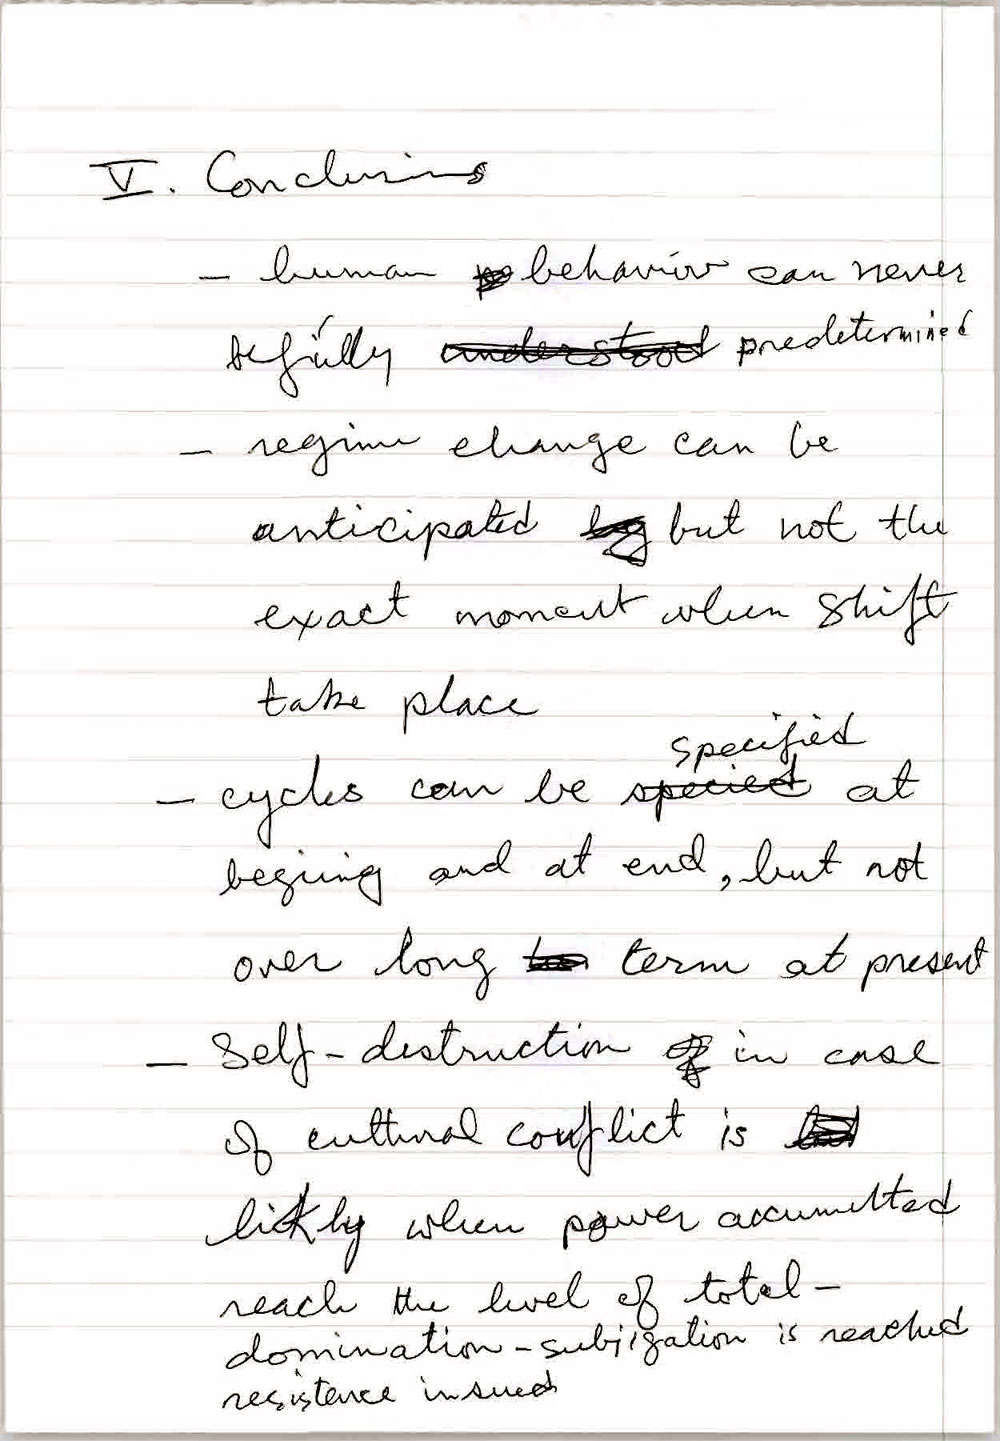 V. Conclusions
- human behavior can never
be fully understood predetermined
- regime change can be
anticipated by but not the
exact moment when shift
take place
specified
- cycles can be specied at
begiing and at end, but not
over long term at present
- Self-destruction of in case
of cultural conflict is
likly when power accumulted
reach the level of total-
domination-subjigation is reached
resistence insued